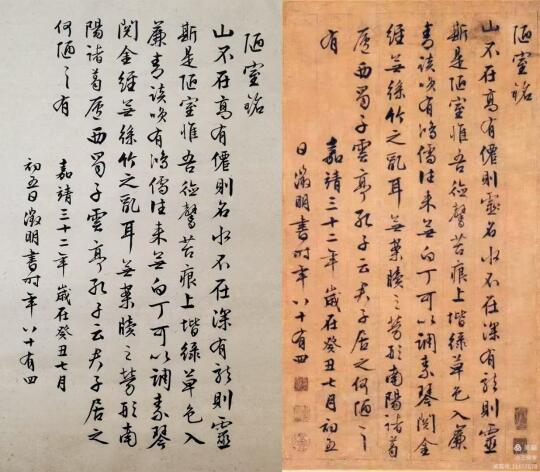 陋室銘
山不在高有僊則名水不在深有龍則靈
斯是陋室惟吾德馨苔痕上堦綠草色入
簾青談咲有鴻儒往来無白丁可以調素琴
閱金經無絲竹之亂耳無案牘之勞形南
陽諸葛廬西蜀子雲亭孔子云夫子居之
何陋之有
嘉靖三十二年歲在癸丑七月
初五日徵明書时年八十有四
陋室銘
山不在高有僊則名水不在深有龍則靈
斯是陋室惟吾德馨苔痕上堦綠草色入簾
青談咲有鴻儒往来無白丁可以調素琴閱金
經無絲竹之亂耳無案牘之勞形南陽諸葛
廬西蜀子雲亭孔子云夫子居之何陋之
有
嘉靖三十二年歲在癸丑七月初五
日徵明書时年八十有四
美篇